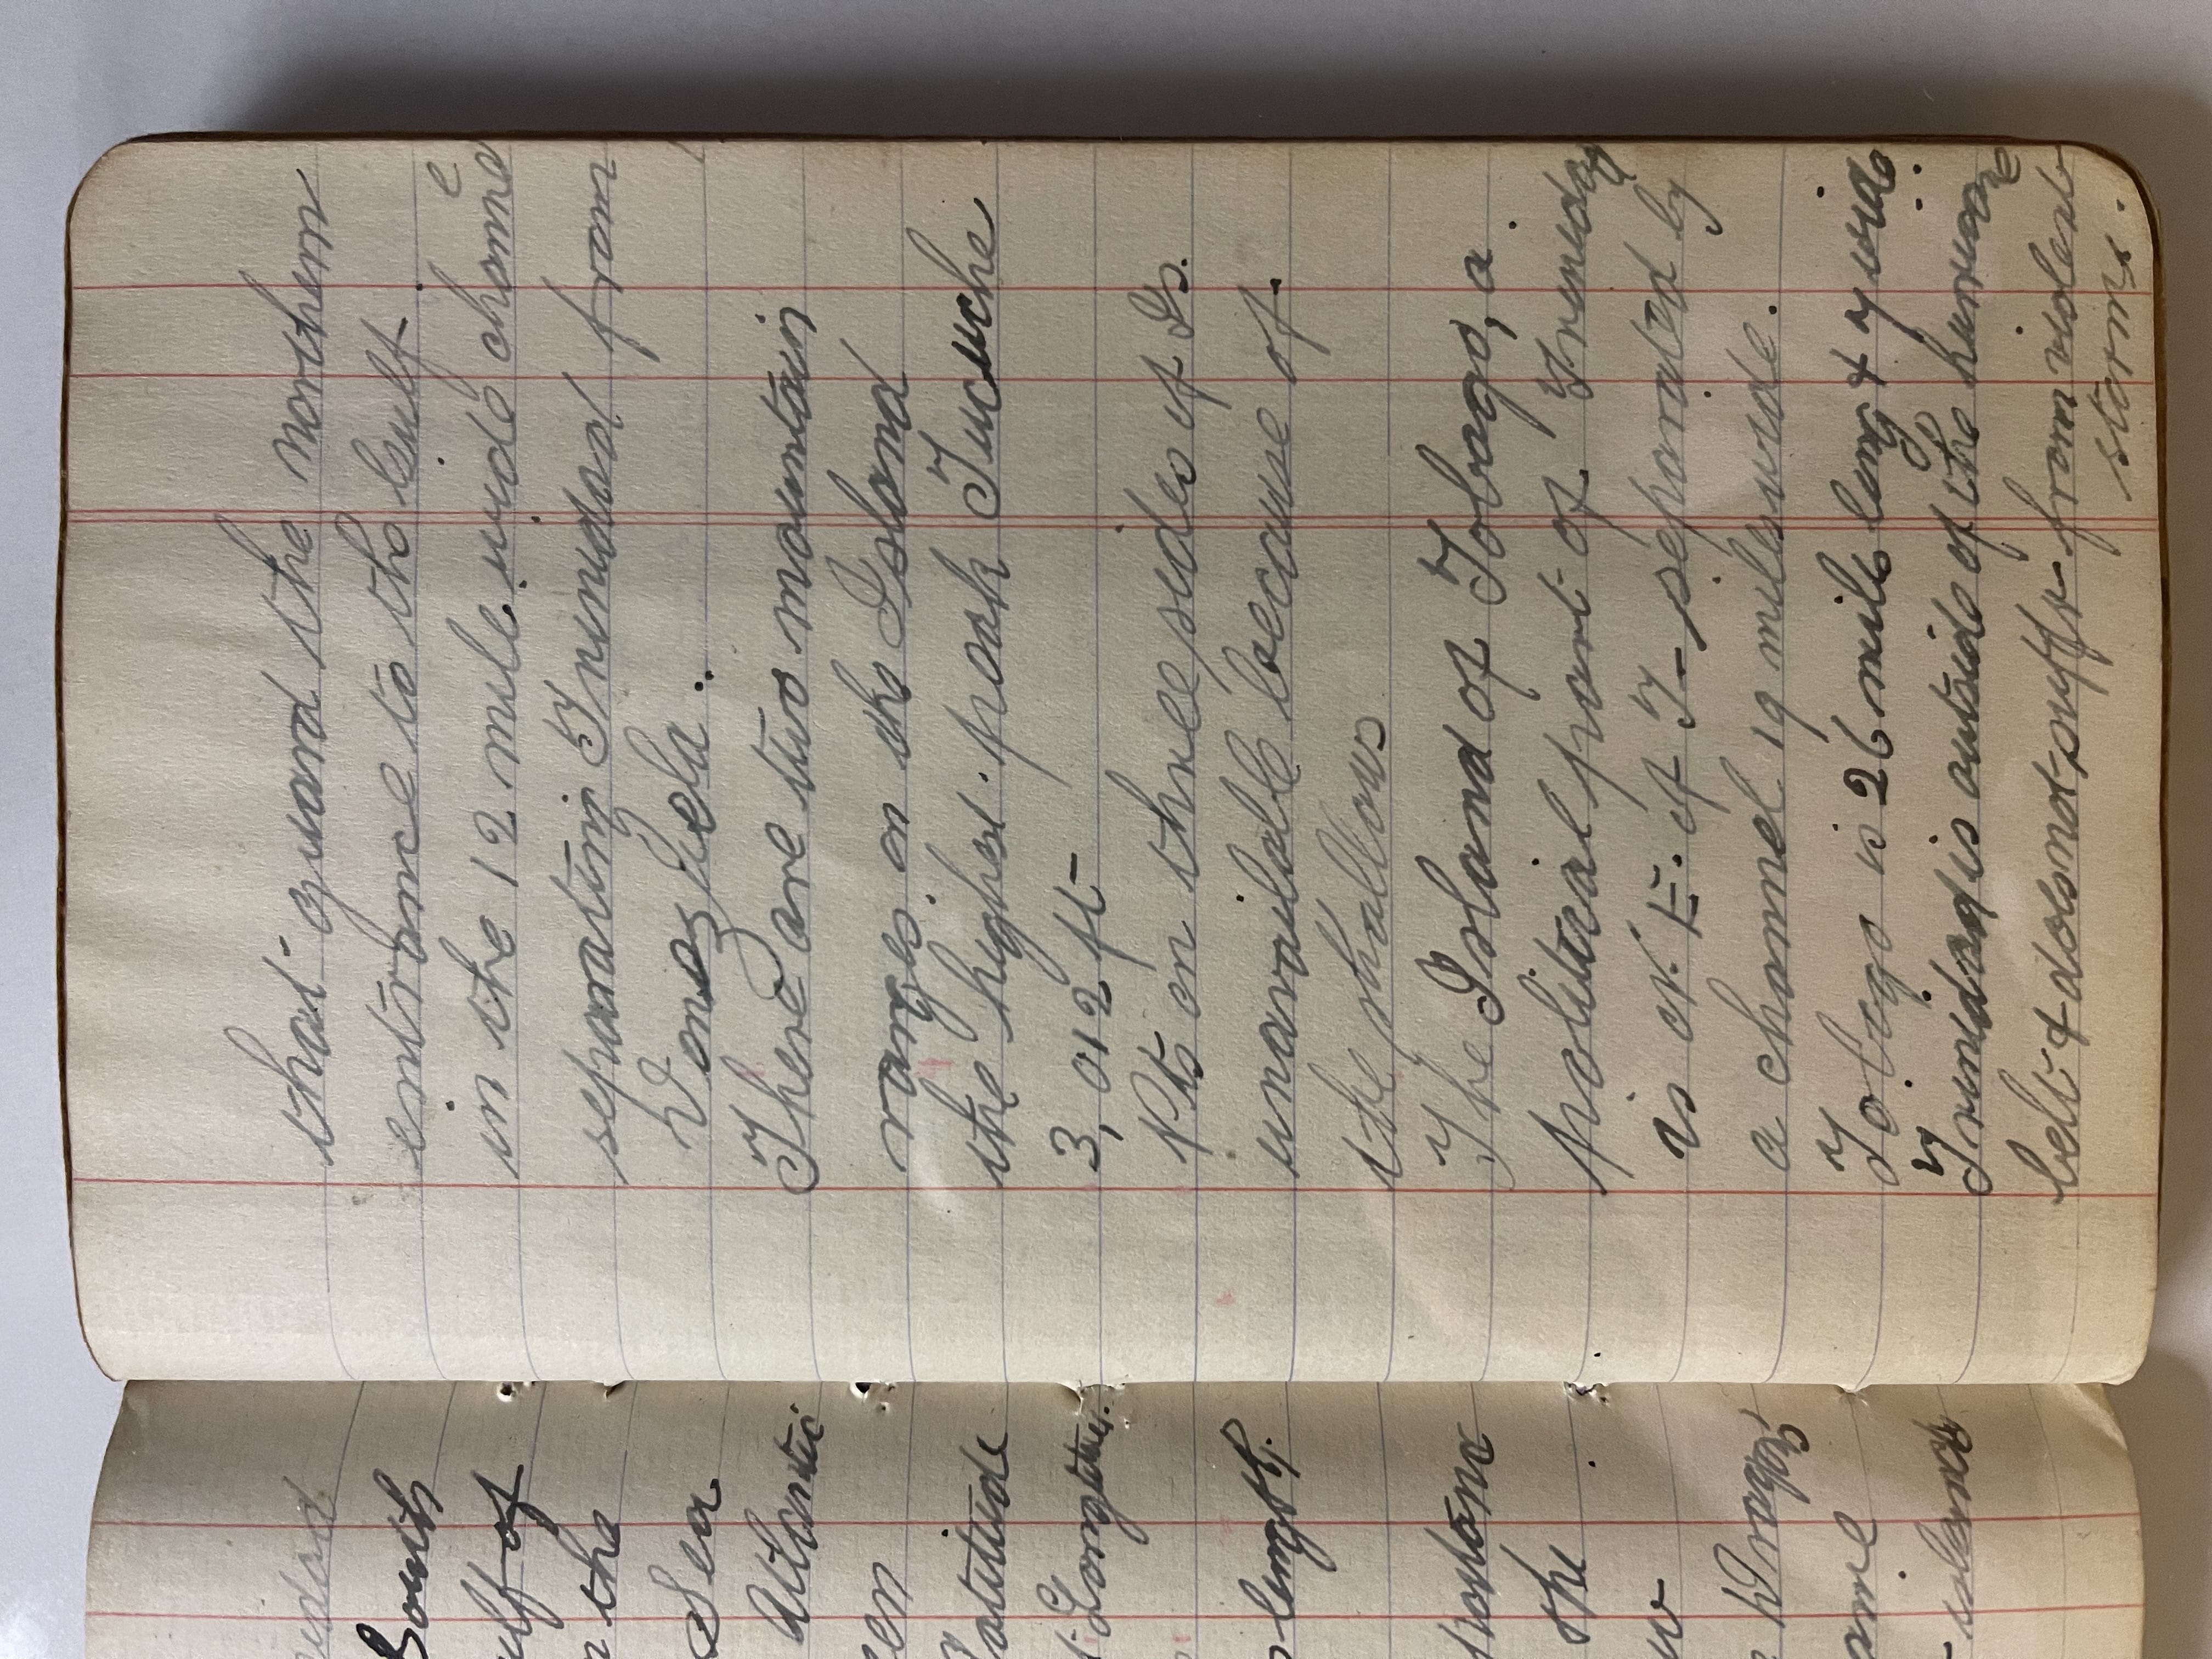 that guard the northern
entrance to the Gulf.
in the 12 mile wide channel
separating Trinidad from
Venezuela.
There are two mountain
ranges on the Island
the highest peak Tucuche
3,012 ft
Pts on three sides of Is.
unavailable because of
the shallows
The Island of Tobago, a
political part of Trinidad
is N.E. of T- separated by
a channel 19 miles wide.
Tobago is 26 miles long & 7 wide.
Trinidad is outside of the hurricane
belt & does not suffer from violent
storms.
South
of
the
Sea
Atlantic
Latitude
Longitude.
length.
the
Dragon's